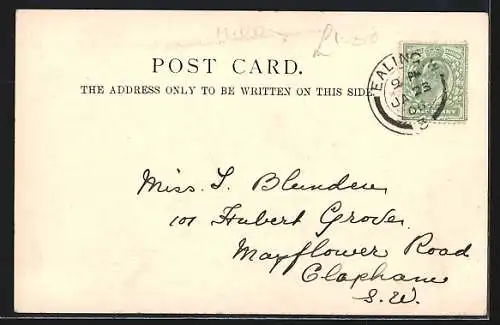 £1.50
POST CARD.
THE ADDRESS ONLY TO BE WRITTEN ON THIS SIDE
EALING
Miss. I. Blunden
101 Hubert Grove.
Mayflower Road
Clapham
S.W.